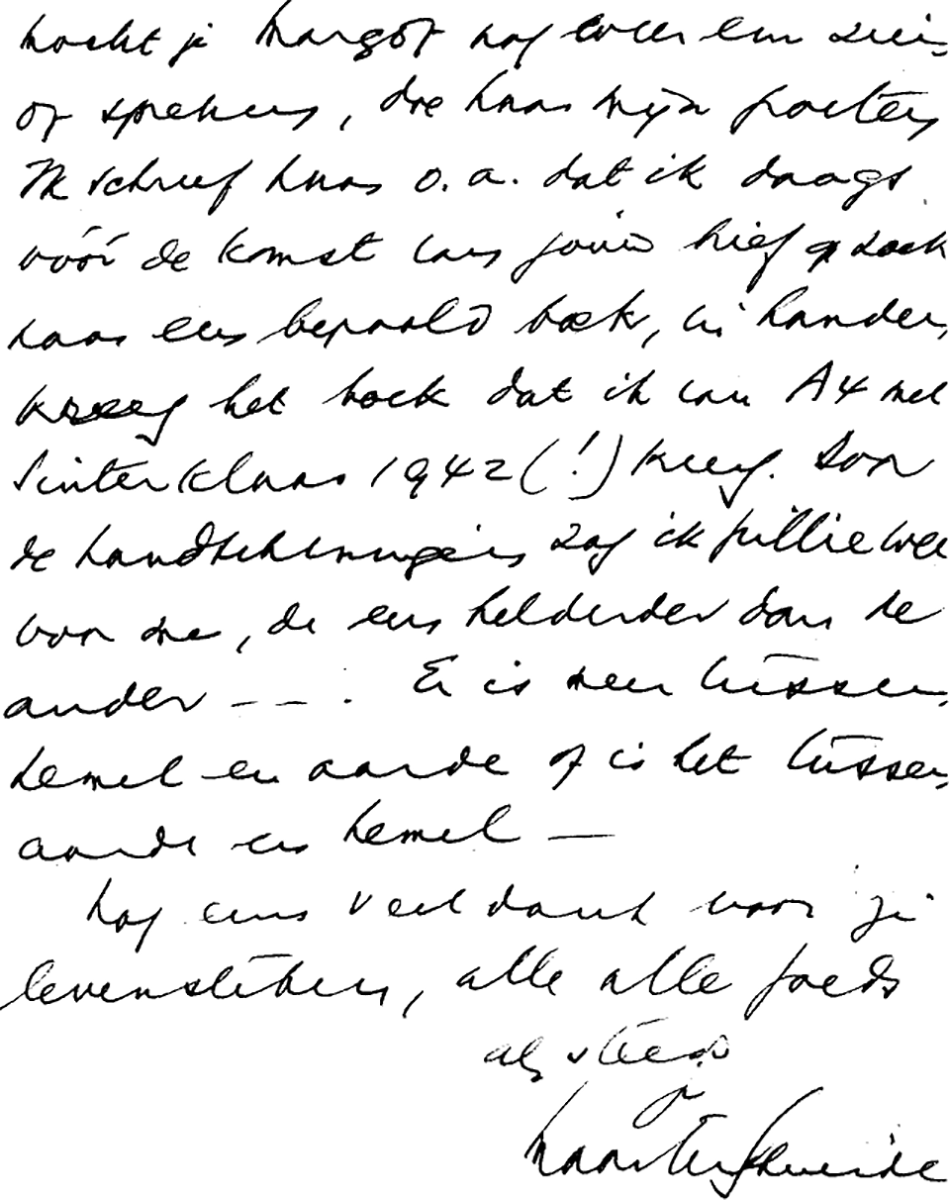 Mocht je Margot nog weer een zien
of spreken, doe haar mijn groeten
Ik schreef haar o.a. dat ik daags
vóór de komst van jouw brief op zoek
naar een bepaald boek, in handen
kreeg het boek dat ik van A4 met
Sinterklaas 1942 (!) kreeg. Door
de handtekeningen zag ik jullie twee
voor me, de een helderder dan de
ander – – . Er is meer tussen
hemel en aarde of is het tussen
aarde en hemel –
Nog eens veel dank voor je
levensteken, alle alle goeds
als steeds
je
Maarten